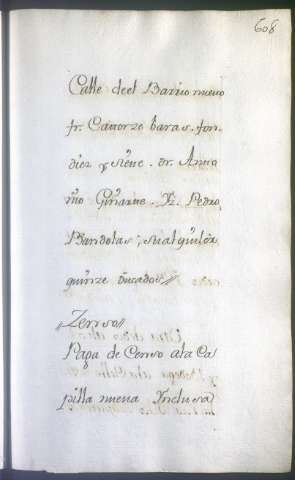 608
Calle deel Barrio nuevo
fr. Catorze baras. fon.
diez y siete. dr. Anto
nio
Pedro
Bandolas; su alquiler
quinze ducados
Zenso
Paga de Censo ala Ca
pilla nueva Inclusa